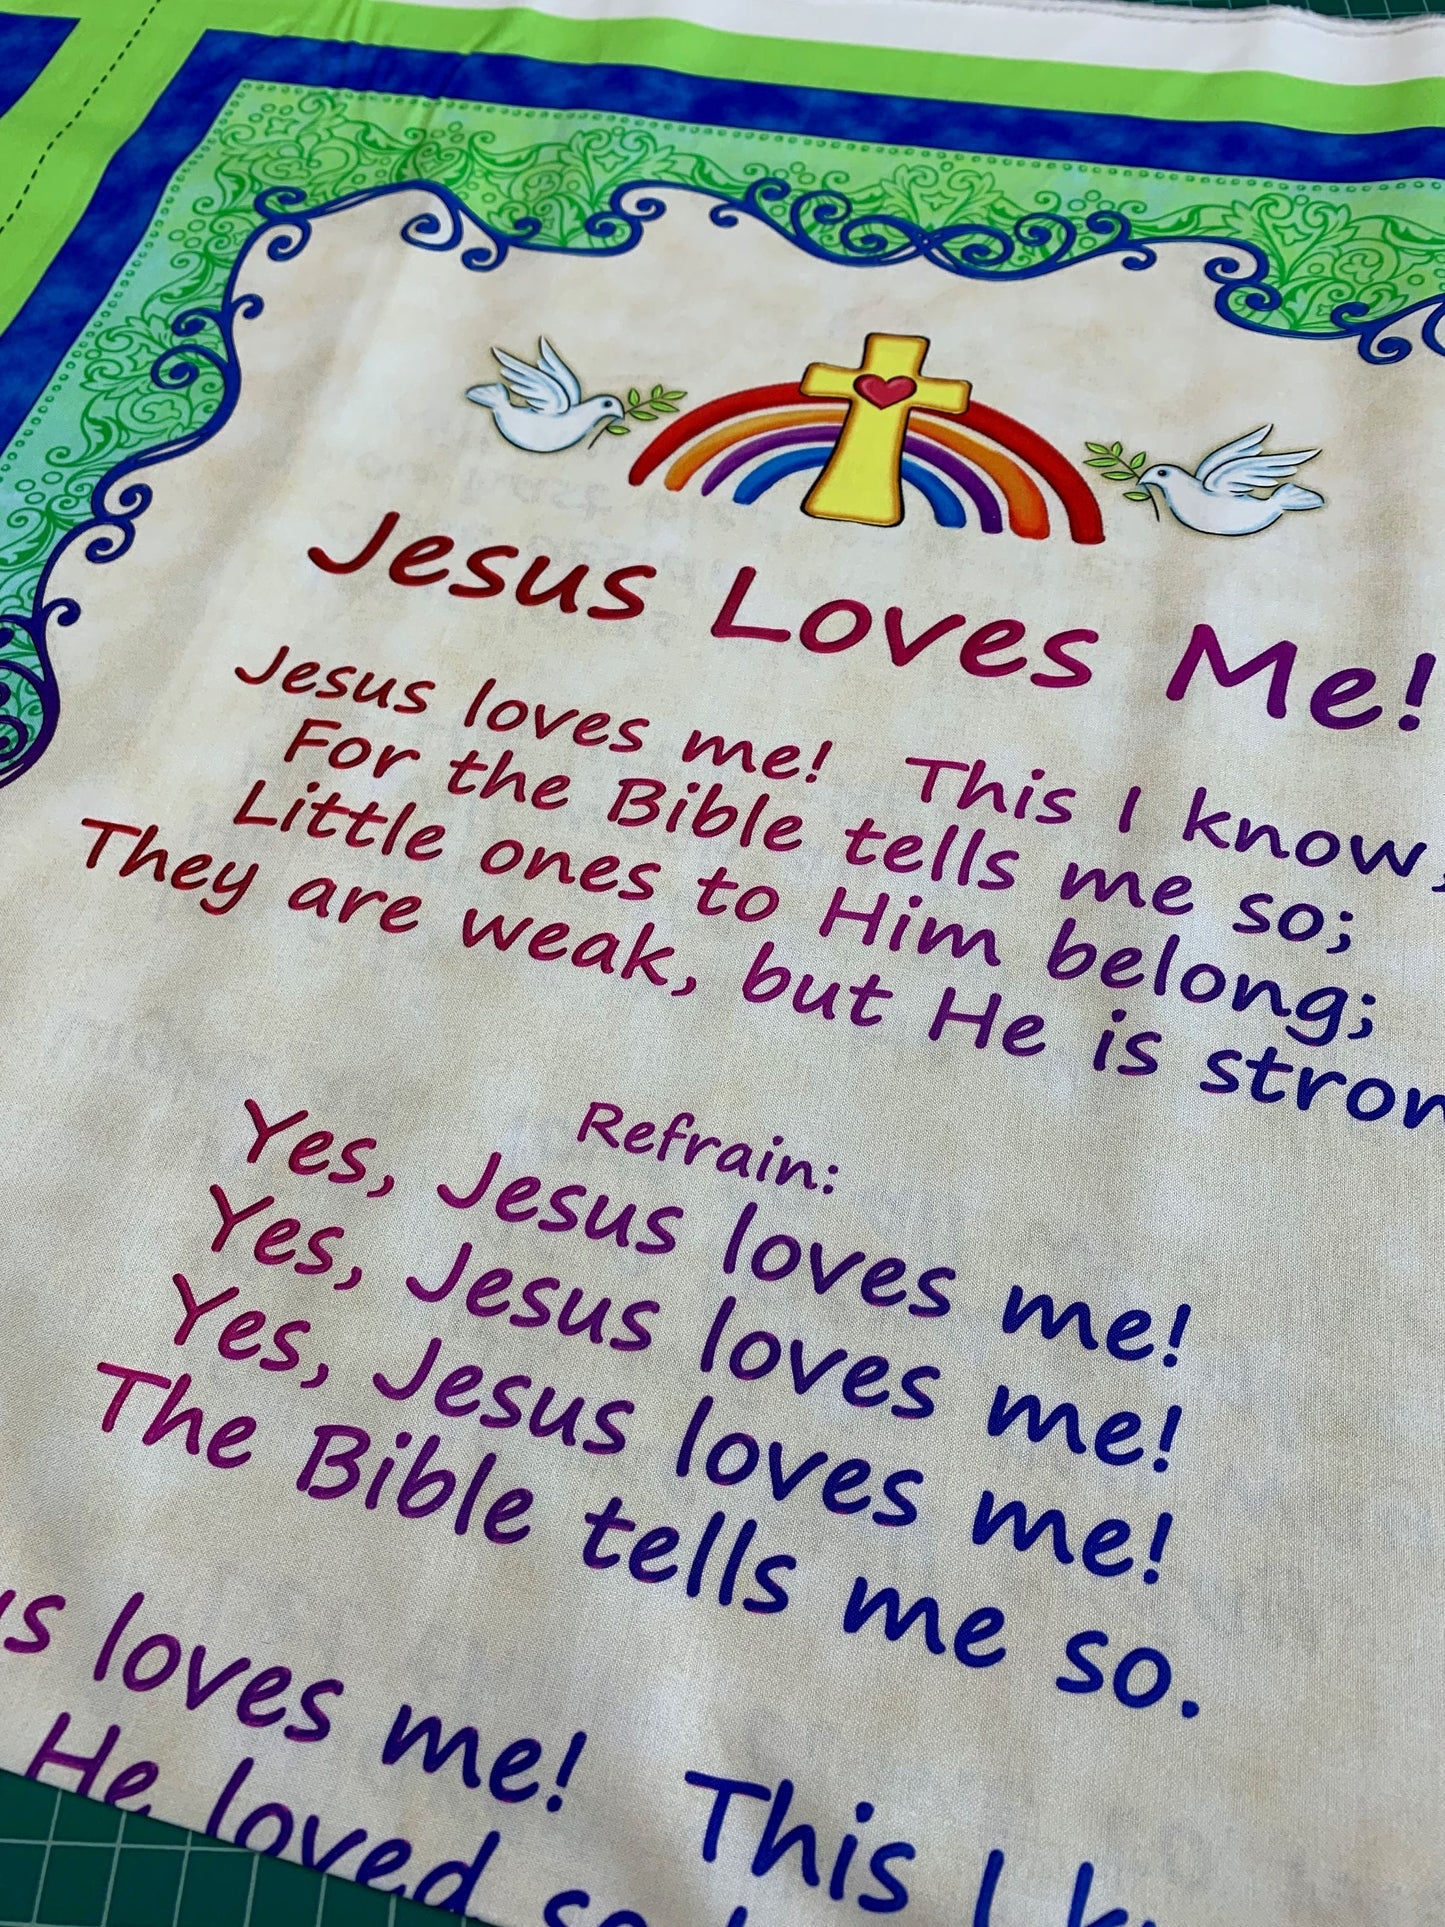 Jesus Loves Me!
Jesus loves me! This I know,
For the Bible tells me so;
Little ones to Him belong;
They are weak, but He is
Refrain:
Yes, Jesus loves me!
Yes, Jesus loves me!
Yes, Jesus loves me!
The Bible tells me so.
loves me! This I
He loved